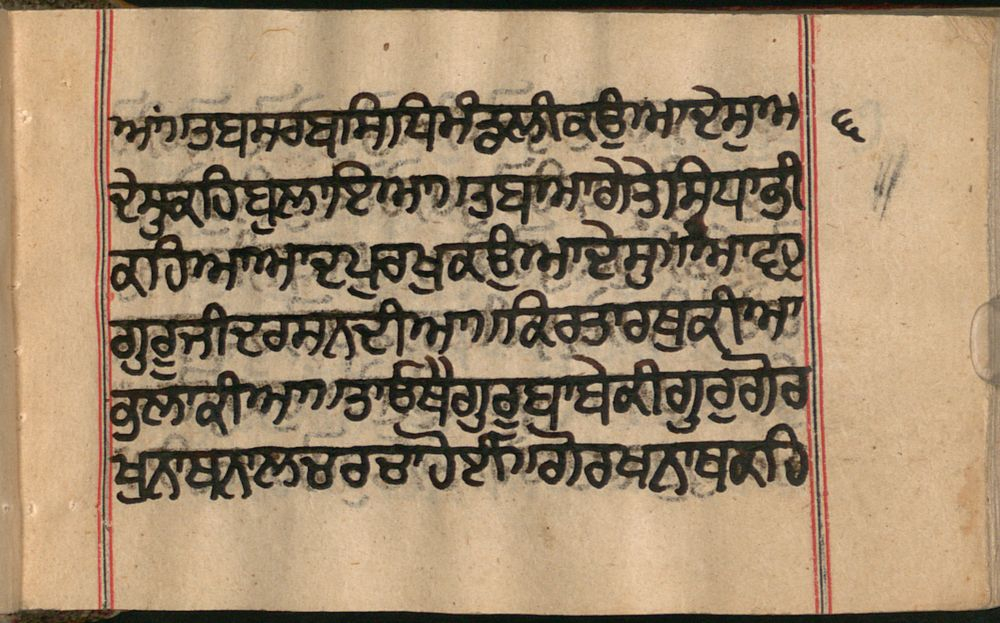 ਆਂ॥ਤਬਸਰਬਸਿਧਿਮੰਡਲੀਕਉਆਦੇਸੁਅ ੬
ਦੇਸੁਕਹਿਬੁਲਾਇਆ॥ਤਬਆਗੇਤੇਸਿਧਾਭੀ
ਕਹਿਆਆਦਪੁਰਖੁਕਉਆਦੇਸੁ॥
ਗੁਰੂਜੀਦਰਸਨਦੀਆ॥ਕਿਰਤਾਰਥੁਕੀਆ
ਕੁਲਾਕੀਆ॥ਤਾਓਥੈਗੁਰੂਬਾਬੇਕੀਗੁਰੂਗੋਰ
ਖੁਨਾਥਨਾਲਚਰਚਾਹੋਈ॥ਗੋਰਖਨਾਥਕਹਿ